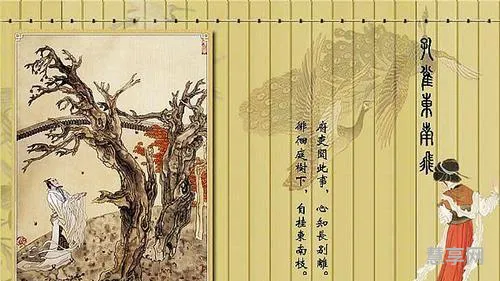 孔雀東南飛
府吏聞此事，心知長別離。
徘徊庭樹下，自挂東南枝。
慧享网